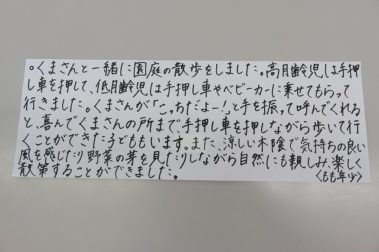 。くまさんと一緒に園庭の散歩をしました。高月齢児は手押
し車を押して、低月齢児は手押し車やベビーカーに乗せてもらって
行きました。くまさんが「こっちだよー!」と手を振って呼んでくれる
と、喜んでくまさんの所まで手押し車を押しながら歩いて行
くことができた子どももいます。また、涼しい木陰で気持ちの良い
風を感じたり野菜の芽を見たりしながら自然にも親しみ、楽しく
散策することができました。
〈もも年少〉